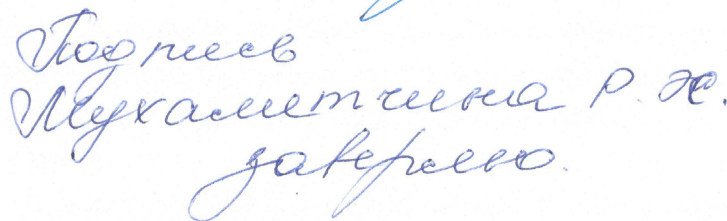 Подпись
Мухаметчина Р. Ж.
заверяю.